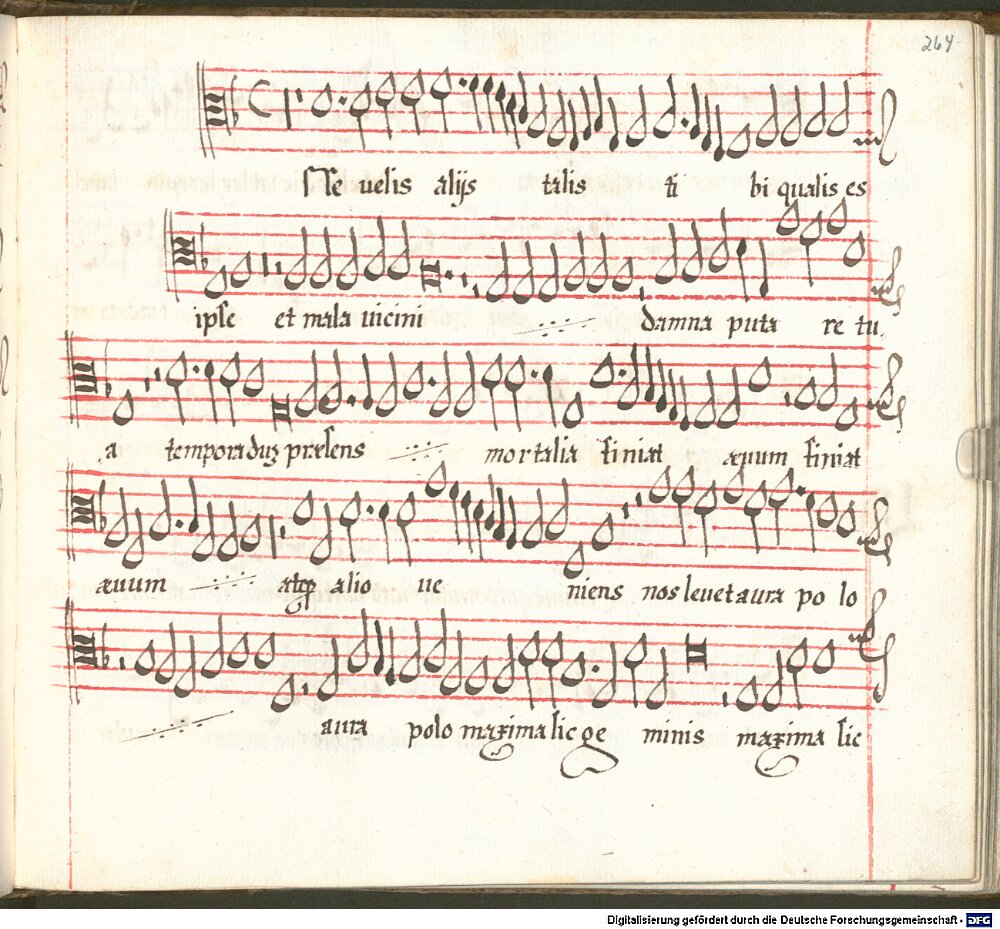 264
Te uelis alijs talis ti bi qualis es
ipse et mala uicini damna puta re tu
a tempora dus præsens mortalia finiat æuum finiat
æuum atqȝ alio ue niens nos leuet aura po lo
aura polo maxima sic ge minis maxima sic
Digitalisierung gefördert durch die Deutsche Forschungsgemeinschaft - DFG